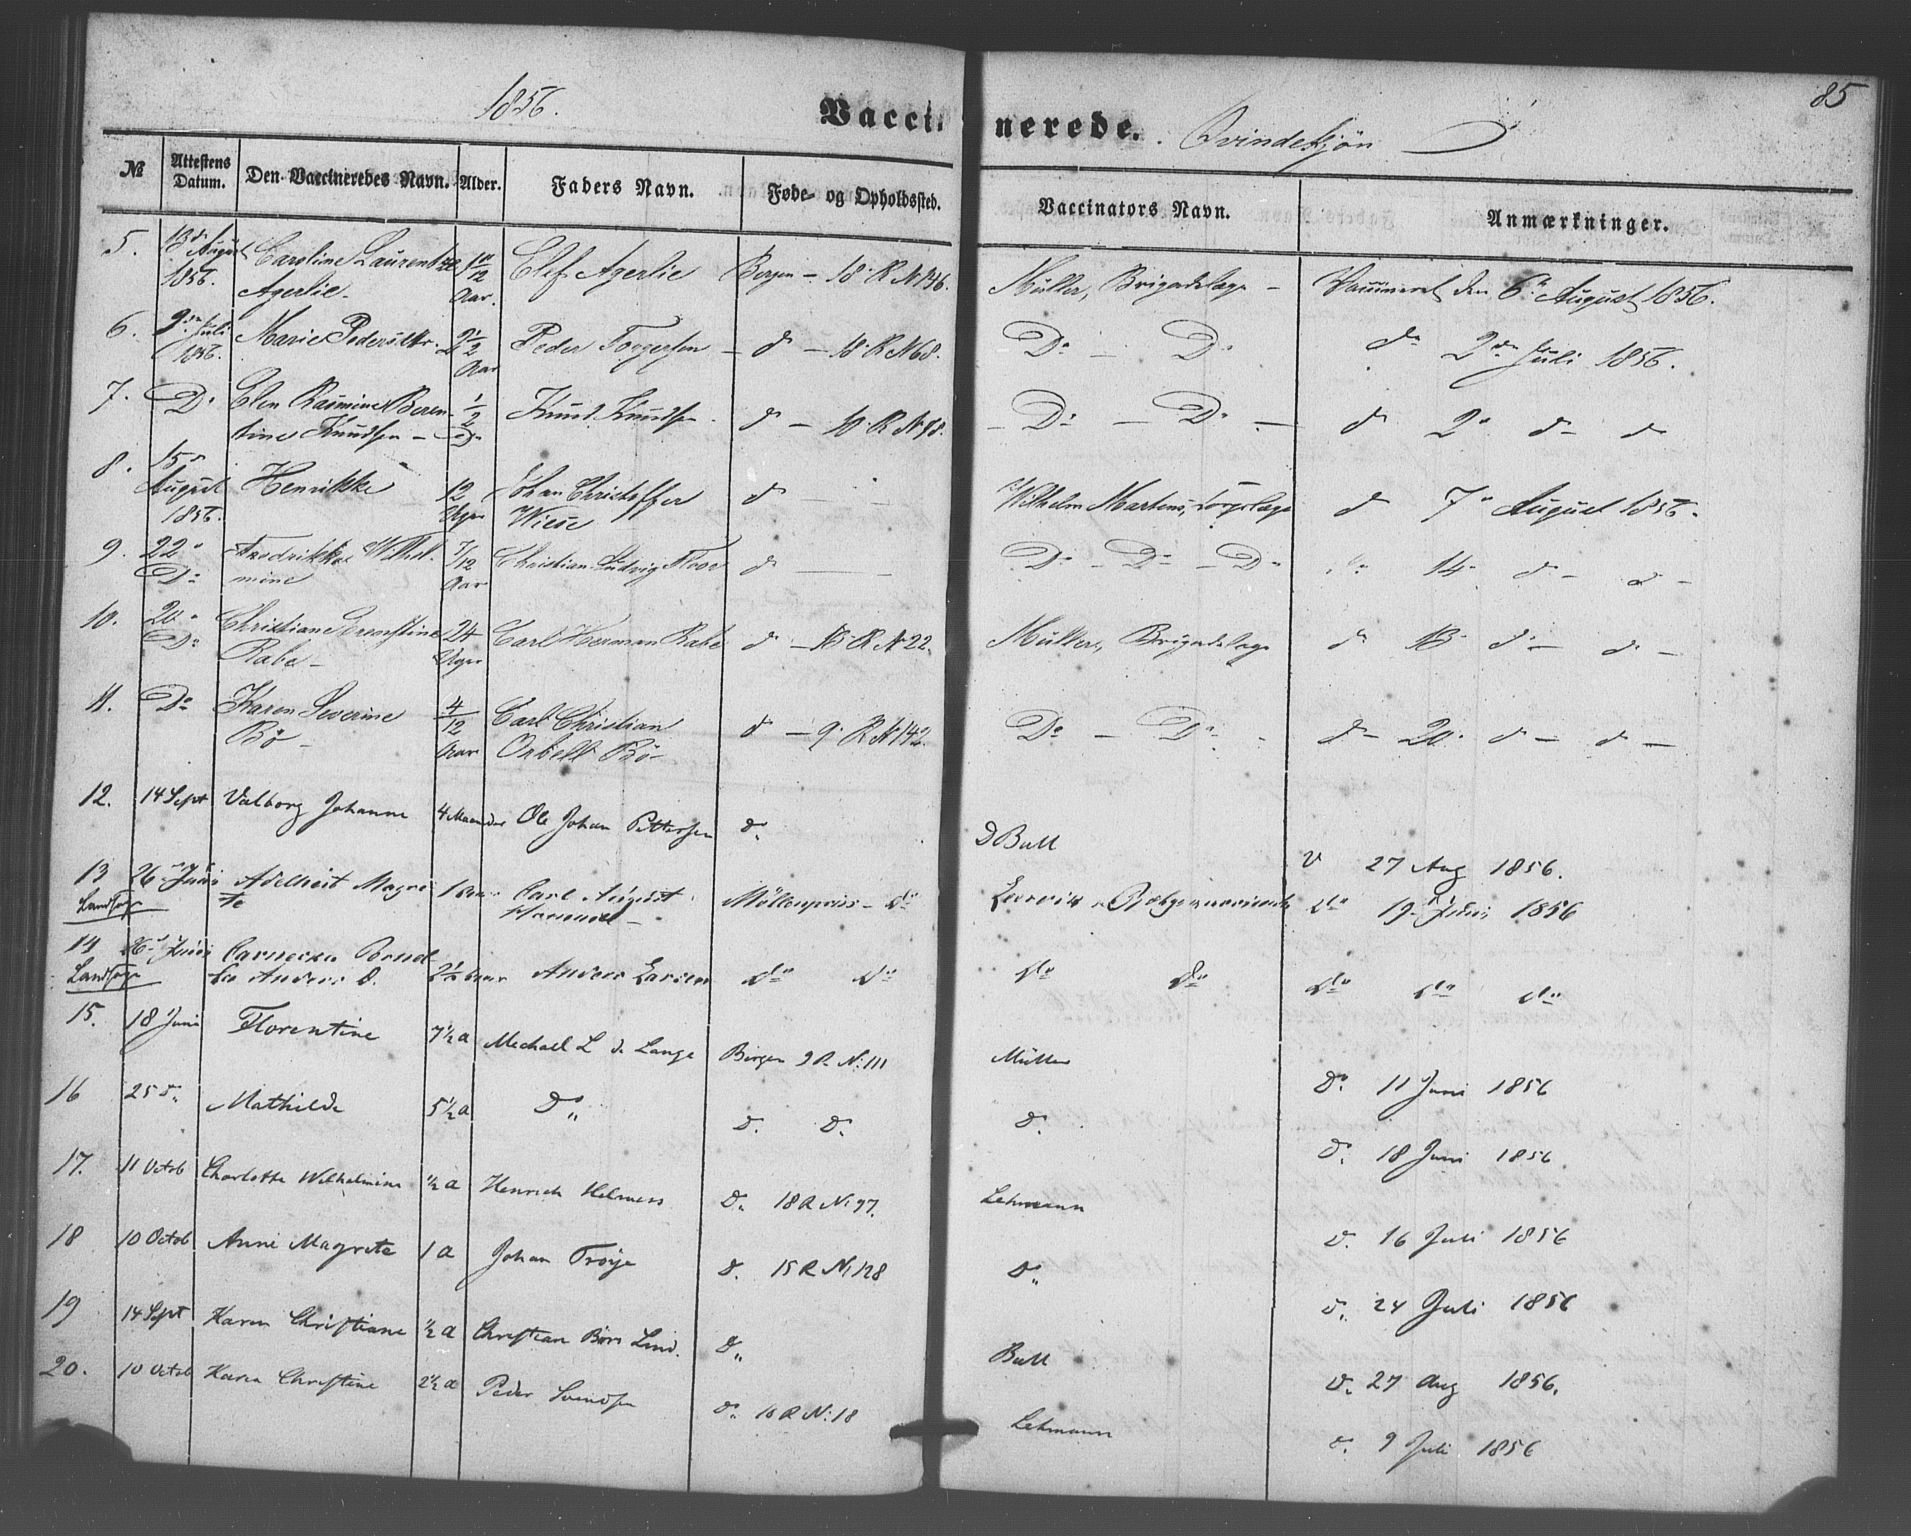 1856.
Vaccinerede. Qvindekjön
85
№ Attestens Datum. Den Vaccineredes Navn. Alder. Faders Navn. Føde- og Opholdssted. Vaccinators Navn. Anmærkninger.
5. 13de August 1856. Caroline Laurentze Agerlie. 10/12 Aar. Elef Agerlie Bergen – 18. R. N 136. Müller, Brigadelæge – Vaccineret den 6te August 1856.
6. 9de Juli 1856. Marie Pedersdtr. 2 1/2 Aar Peder Torgersen – do – 18. R. N 68. Do – Do do 2den Juli 1856.
7. Do Elen Rasmine Berentine Knudsen – 1/2 Do Knud Knudsen. do – 10. R. N 98. Do – Do – do 2n do do
8. 15n August 1856. Henrikke 12 Uger Johan Christoffer Wiese do – Wilhelm Martens, Corpslæge do 7n August 1856.
9. 22n Do Fredrikke Wilhelmine 7/12 Aar Christian Ludvig Floor do – Do – Do – Do do 14 do – do –
10. 20n Do Christiane Ernestine Rabe – 24 Uger Carl Herman Rabe do – 13. R. N 22. Müller, Brigadelæge do 13 do – do –
11. Do Karen Severine Bö – 4/12 Aar Carl Christian Bö – do – 9. R. N 142. Do – Do do – 20. do – do –
12. 14 Sept Valborg Johanne 4 Maaneder Ole Johan Pettersen do D Bull V 27 Aug 1856.
13 26n Juni Adelheit Magrete 1 Aar Carl August Möllenpriis – do do 19. Juni 1856
14 26n Juni Anders D. 2 1/2 Aar Anders Larsen do do do do do do do
15. 18 Juni Florentine 7½ a Michael L de Lange Bergen 9 R N: 111 Müller Do 11 Juni 1856
16 25 do Mathilde 5½ a Do do do do do 18 Juni 1856
17. 11 Octob Charlotte Wilhelmine ½ a Henrich Helmers Do 18 R N: 97. Lehmann do 16 Juli 1856
18 10 Octob Anne Magrete 1 a Johan Tröye do 15 R N: 128 do do 24 Juli 1856
19 14 Sept Karen Christiane ½ a Christian Börs Lind. do Bull do 27 Aug 1856.
20. 10 Octob Karen Christine 2½ a Peder Svendsen do 10 R N: 18 Lehmann do 9 Juli 1856